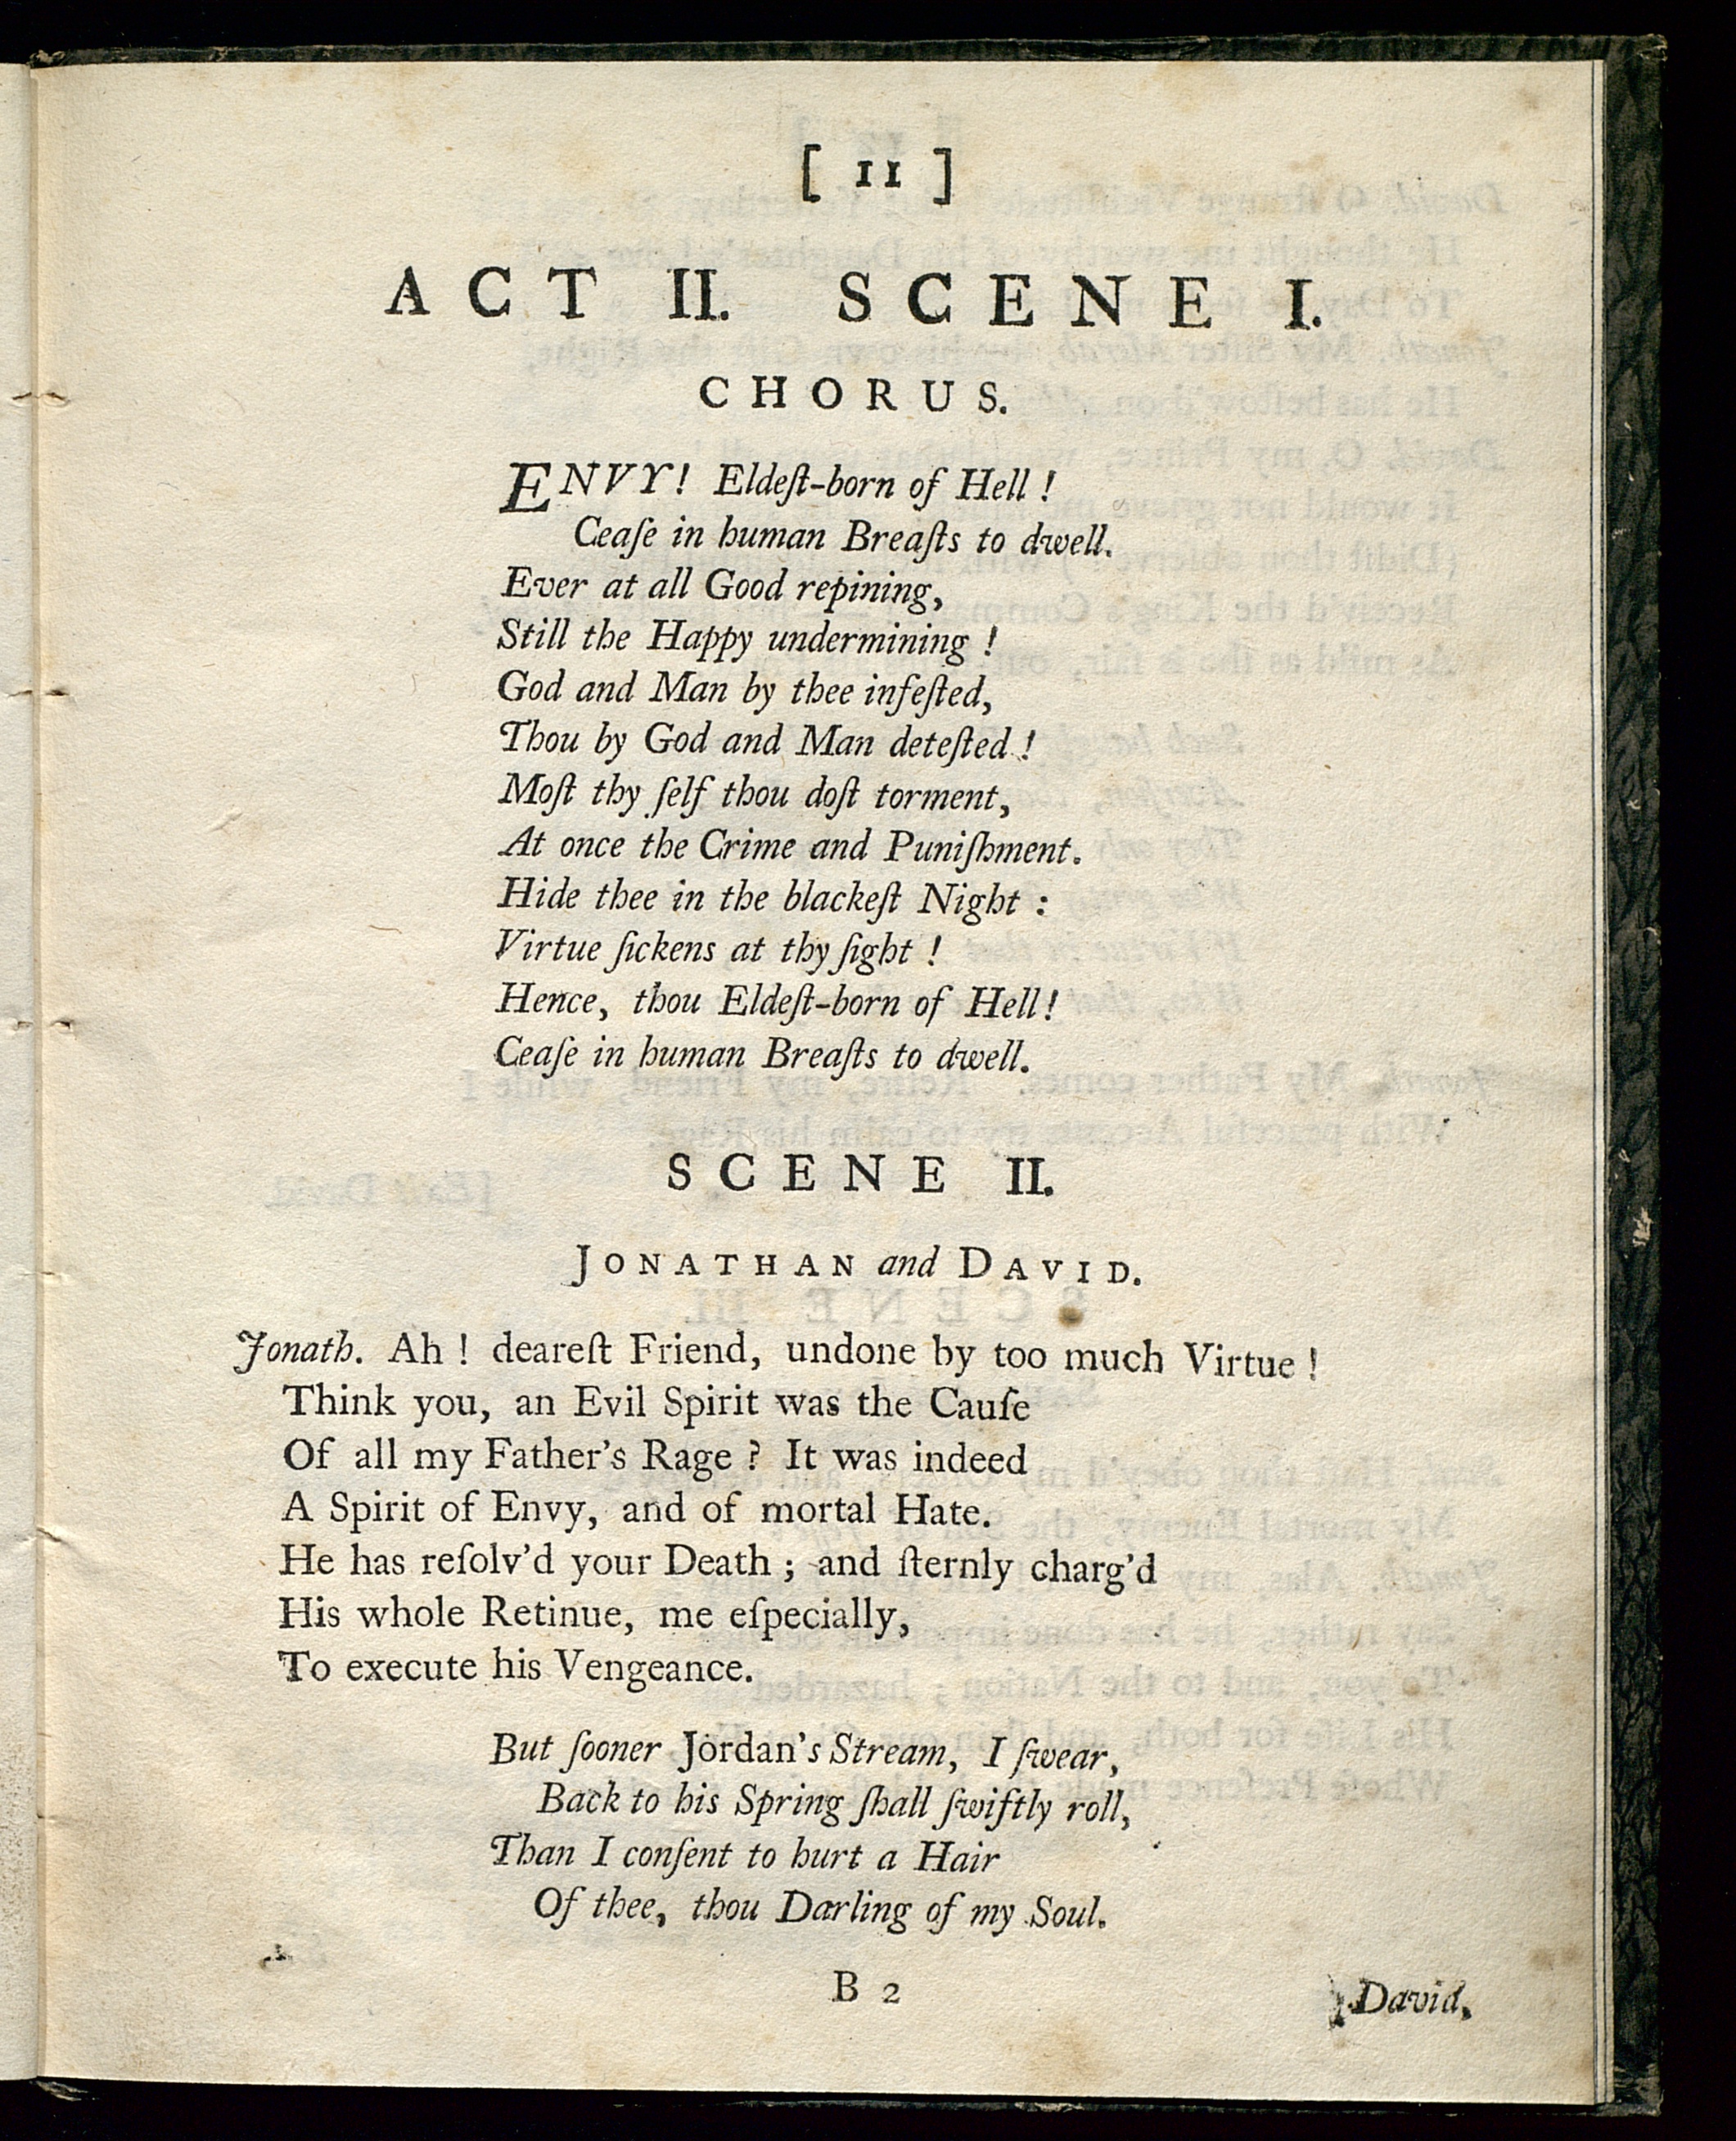 [ 11 ]
ACT II. SCENE I.
CHORUS.
ENVY! Eldeſt-born of Hell !
Ceaſe in human Breaſts to dwell.
Ever at all Good repining,
Still the Happy undermining !
God and Man by thee infeſted,
Thou by God and Man deteſted !
Moſt thy ſelf thou doſt torment,
At once the Crime and Puniſhment.
Hide thee in the blackeſt Night :
Virtue ſickens at thy ſight !
Hence, thou Eldeſt-born of Hell!
Ceaſe in human Breaſts to dwell.
SCENE II.
JONATHAN and DAVID.
Jonath. Ah ! deareſt Friend, undone by too much Virtue !
Think you, an Evil Spirit was the Cauſe
Of all my Father's Rage ? It was indeed
A Spirit of Envy, and of mortal Hate.
He has reſolv'd your Death ; and ſternly charg'd
His whole Retinue, me eſpecially,
To execute his Vengeance.
But ſooner Jordan's Stream, I ſwear,
Back to his Spring ſhall ſwiftly roll,
Than I conſent to hurt a Hair
Of thee, thou Darling of my Soul.
B 2
David,